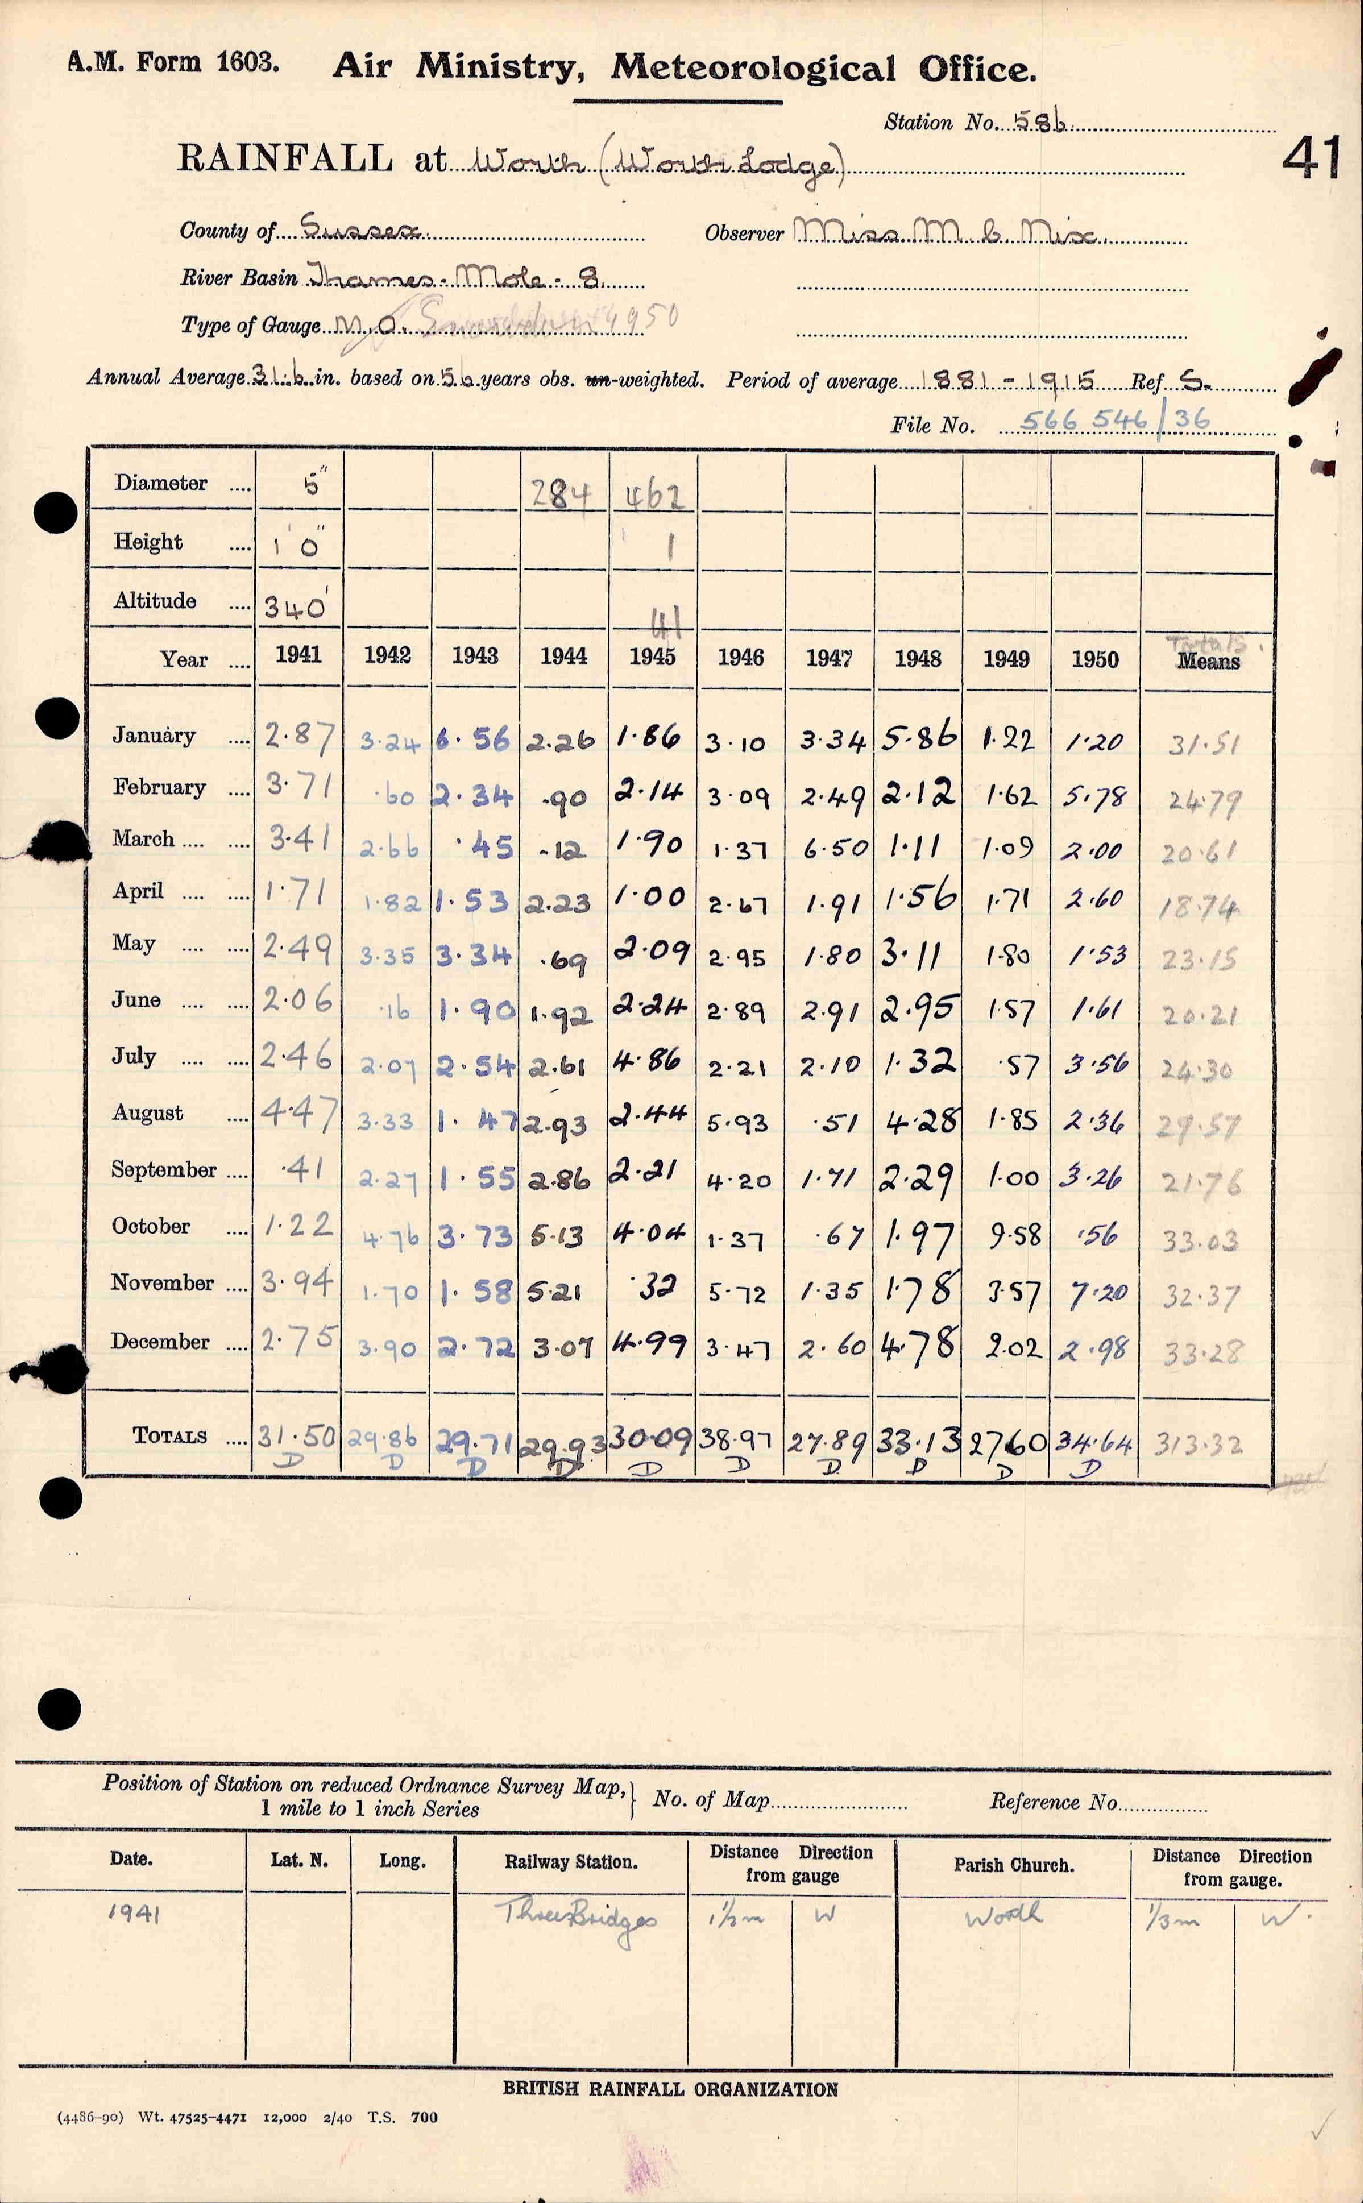 A.M. Form 1603. Air Ministry, Meteorological Office.
Station No. 586
41
RAINFALL at Worth (Worth Lodge)
County of Sussex Observer Miss M C Nix
River Basin Thames - Mole - 8
Type of Gauge M.O. 1950
Annual Average 31.6 in. based on 56 years obs. un-weighted. Period of average 1881 - 1915 Ref S.
File No. 566 546/36
Diameter .... 5" 284 462
Height .... 1' 0" 1
Altitude .... 340' 41
Totals.
Year .... 1941 1942 1943 1944 1945 1946 1947 1948 1949 1950 Means
January .... 2.87 3.24 6.56 2.26 1.86 3.10 3.34 5.86 1.22 1.20 31.51
February .... 3.71 .60 2.34 .90 2.14 3.09 2.49 2.12 1.62 5.78 24.79
March .... .... 3.41 2.66 .45 .12 1.90 1.37 6.50 1.11 1.09 2.00 20.61
April .... .... 1.71 1.82 1.53 2.23 1.00 2.67 1.91 1.56 1.71 2.60 18.74
May .... .... 2.49 3.35 3.34 .69 2.09 2.95 1.80 3.11 1.80 1.53 23.15
June .... .... 2.06 .16 1.90 1.92 2.24 2.89 2.91 2.95 1.57 1.61 20.21
July .... .... 2.46 2.07 2.54 2.61 4.86 2.21 2.10 1.32 .57 3.56 24.30
August .... 4.47 3.33 1.47 2.93 2.44 5.93 .51 4.28 1.85 2.36 29.57
September .... .41 2.27 1.55 2.86 2.21 4.20 1.71 2.29 1.00 3.26 21.76
October .... 1.22 4.76 3.73 5.13 4.04 1.37 .67 1.97 9.58 .56 33.03
November .... 3.94 1.70 1.58 5.21 .32 5.72 1.35 1.78 3.57 7.20 32.37
December .... 2.75 3.90 2.72 3.07 4.99 3.47 2.60 4.78 2.02 2.98 33.28
TOTALS .... 31.50 29.86 29.71 29.93 30.09 38.97 27.89 33.13 27.60 34.64 313.32
D D D D D D D D D D
Position of Station on reduced Ordnance Survey Map, 1 mile to 1 inch Series } No. of Map Reference No.
Date. Lat. N. Long. Railway Station. Distance Direction from gauge Parish Church. Distance Direction from gauge.
1941 Three Bridges 1½m W Worth ⅓m W.
BRITISH RAINFALL ORGANIZATION
(4486-90) Wt. 47525-4471 12,000 2/40 T.S. 700